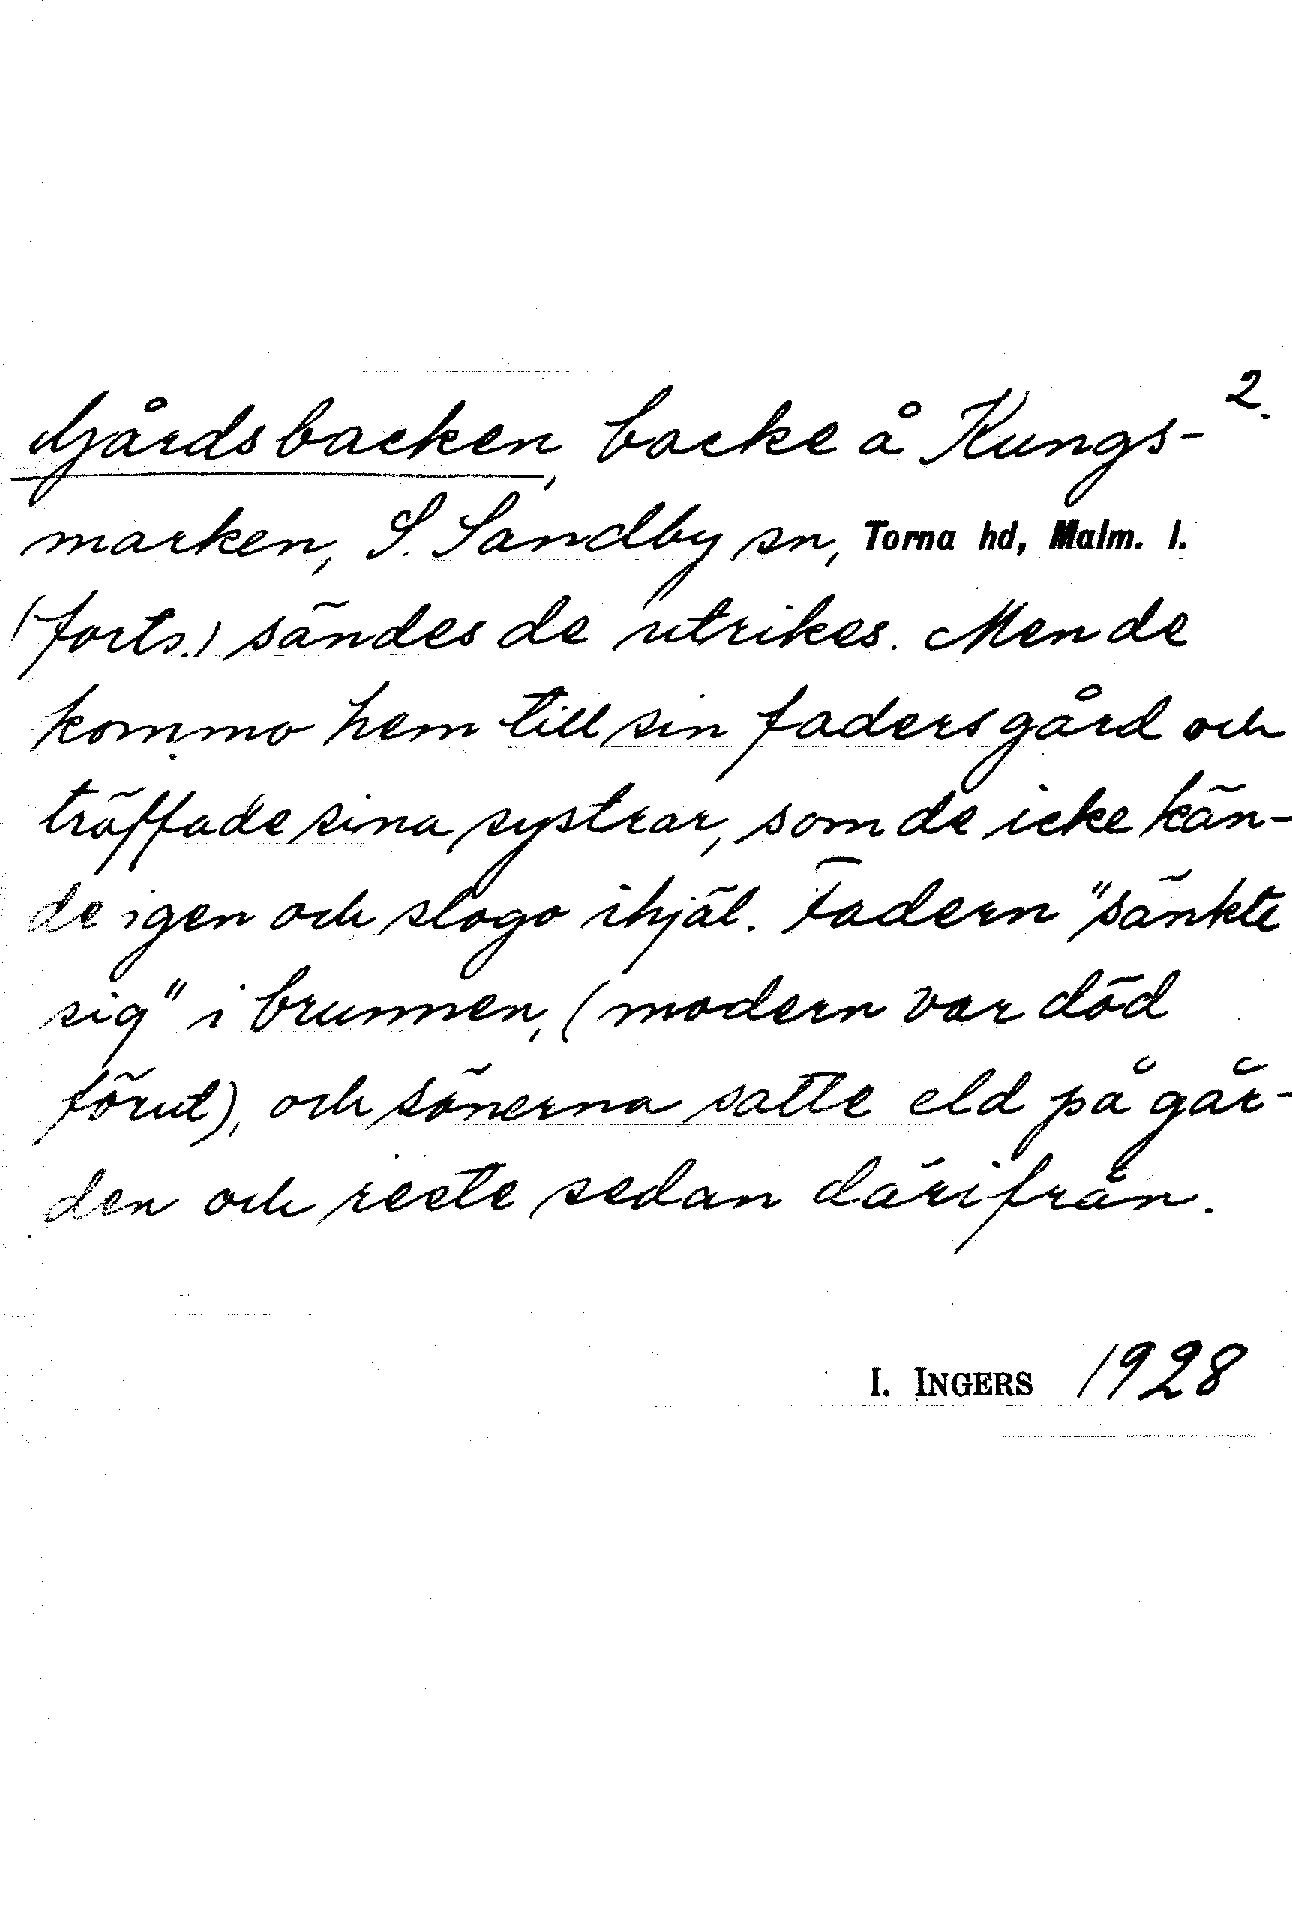 2.
Gårdsbacken, backe å Kungs-
marken, S. Sandby sn, Torna hd, Malm. l.
(forts.) sändes de utrikes. Men de
kommo hem till sin fadersgård och
träffade sina systrar, som de icke kän-
de igen och slogo ihjäl. Fadern "sänkte
sig" i brunnen, (modern var död
förut), och sönerna satte eld på går-
den och reste sedan därifrån.
I. INGERS 1928